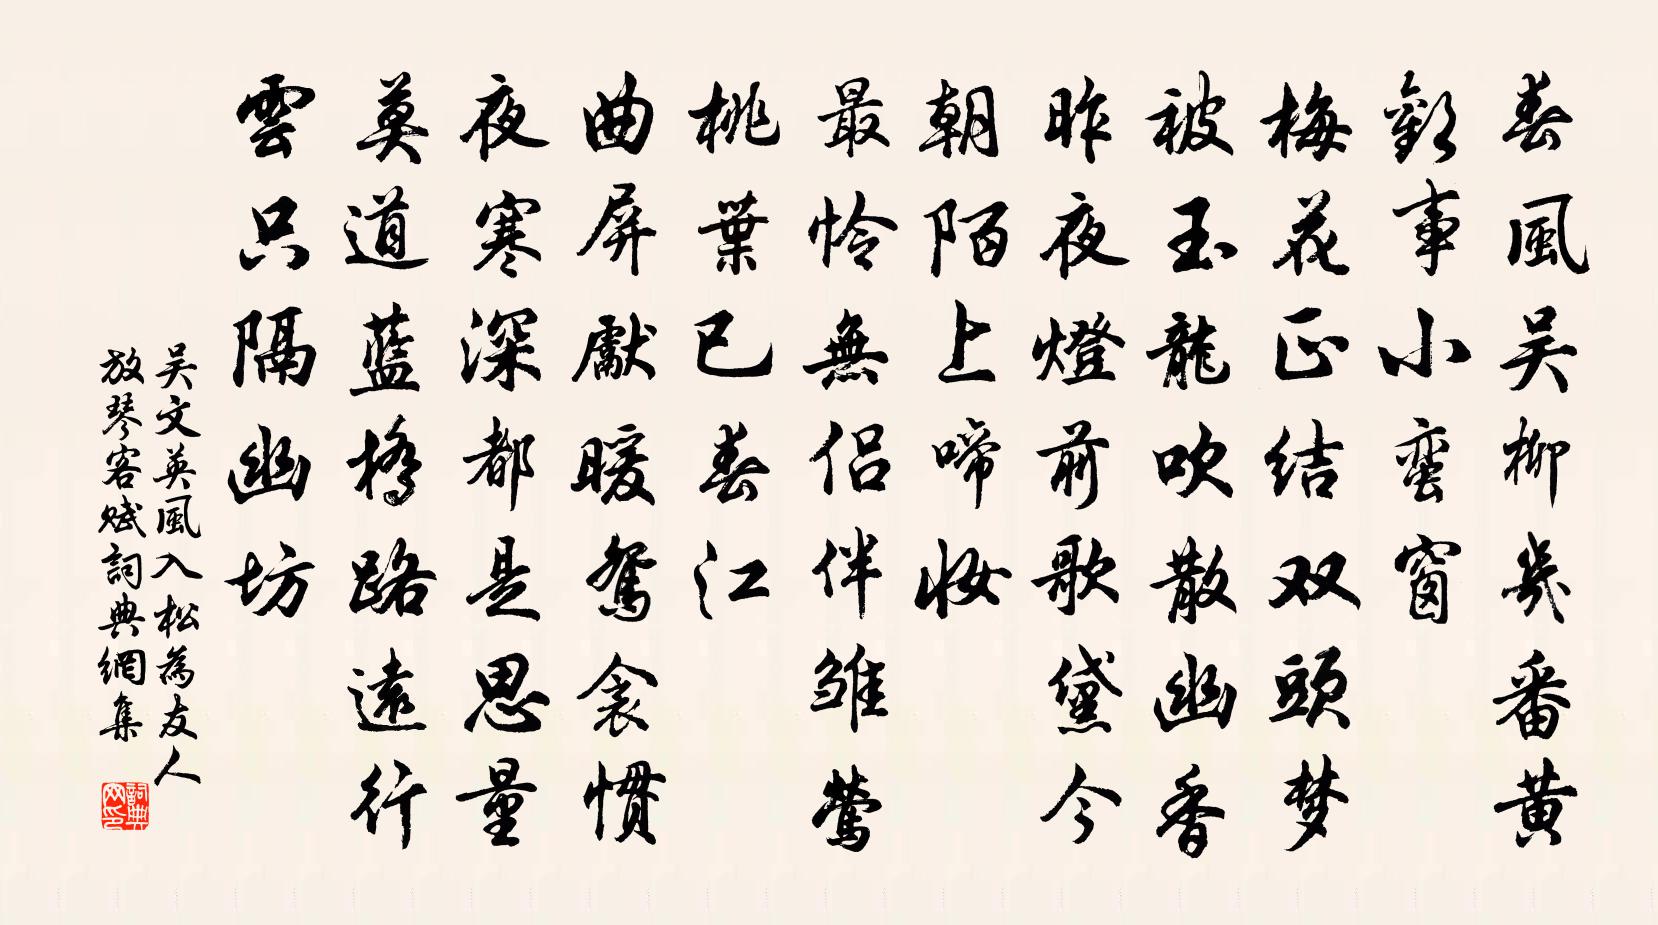 春風吴柳幾番黄
歡事小蠻窗
梅花正结双頭梦
被玉龍吹散幽香
昨夜燈前歌黛今
朝陌上啼妝
最怜無侣伴雏鶯
桃葉已春江
曲屏獻暖鴛衾慣
夜寒深都是思量
莫道藍橋路遠行
雲只隔幽坊
吴文英風入松為友人
放琴客賦詞典網集
詞典网印